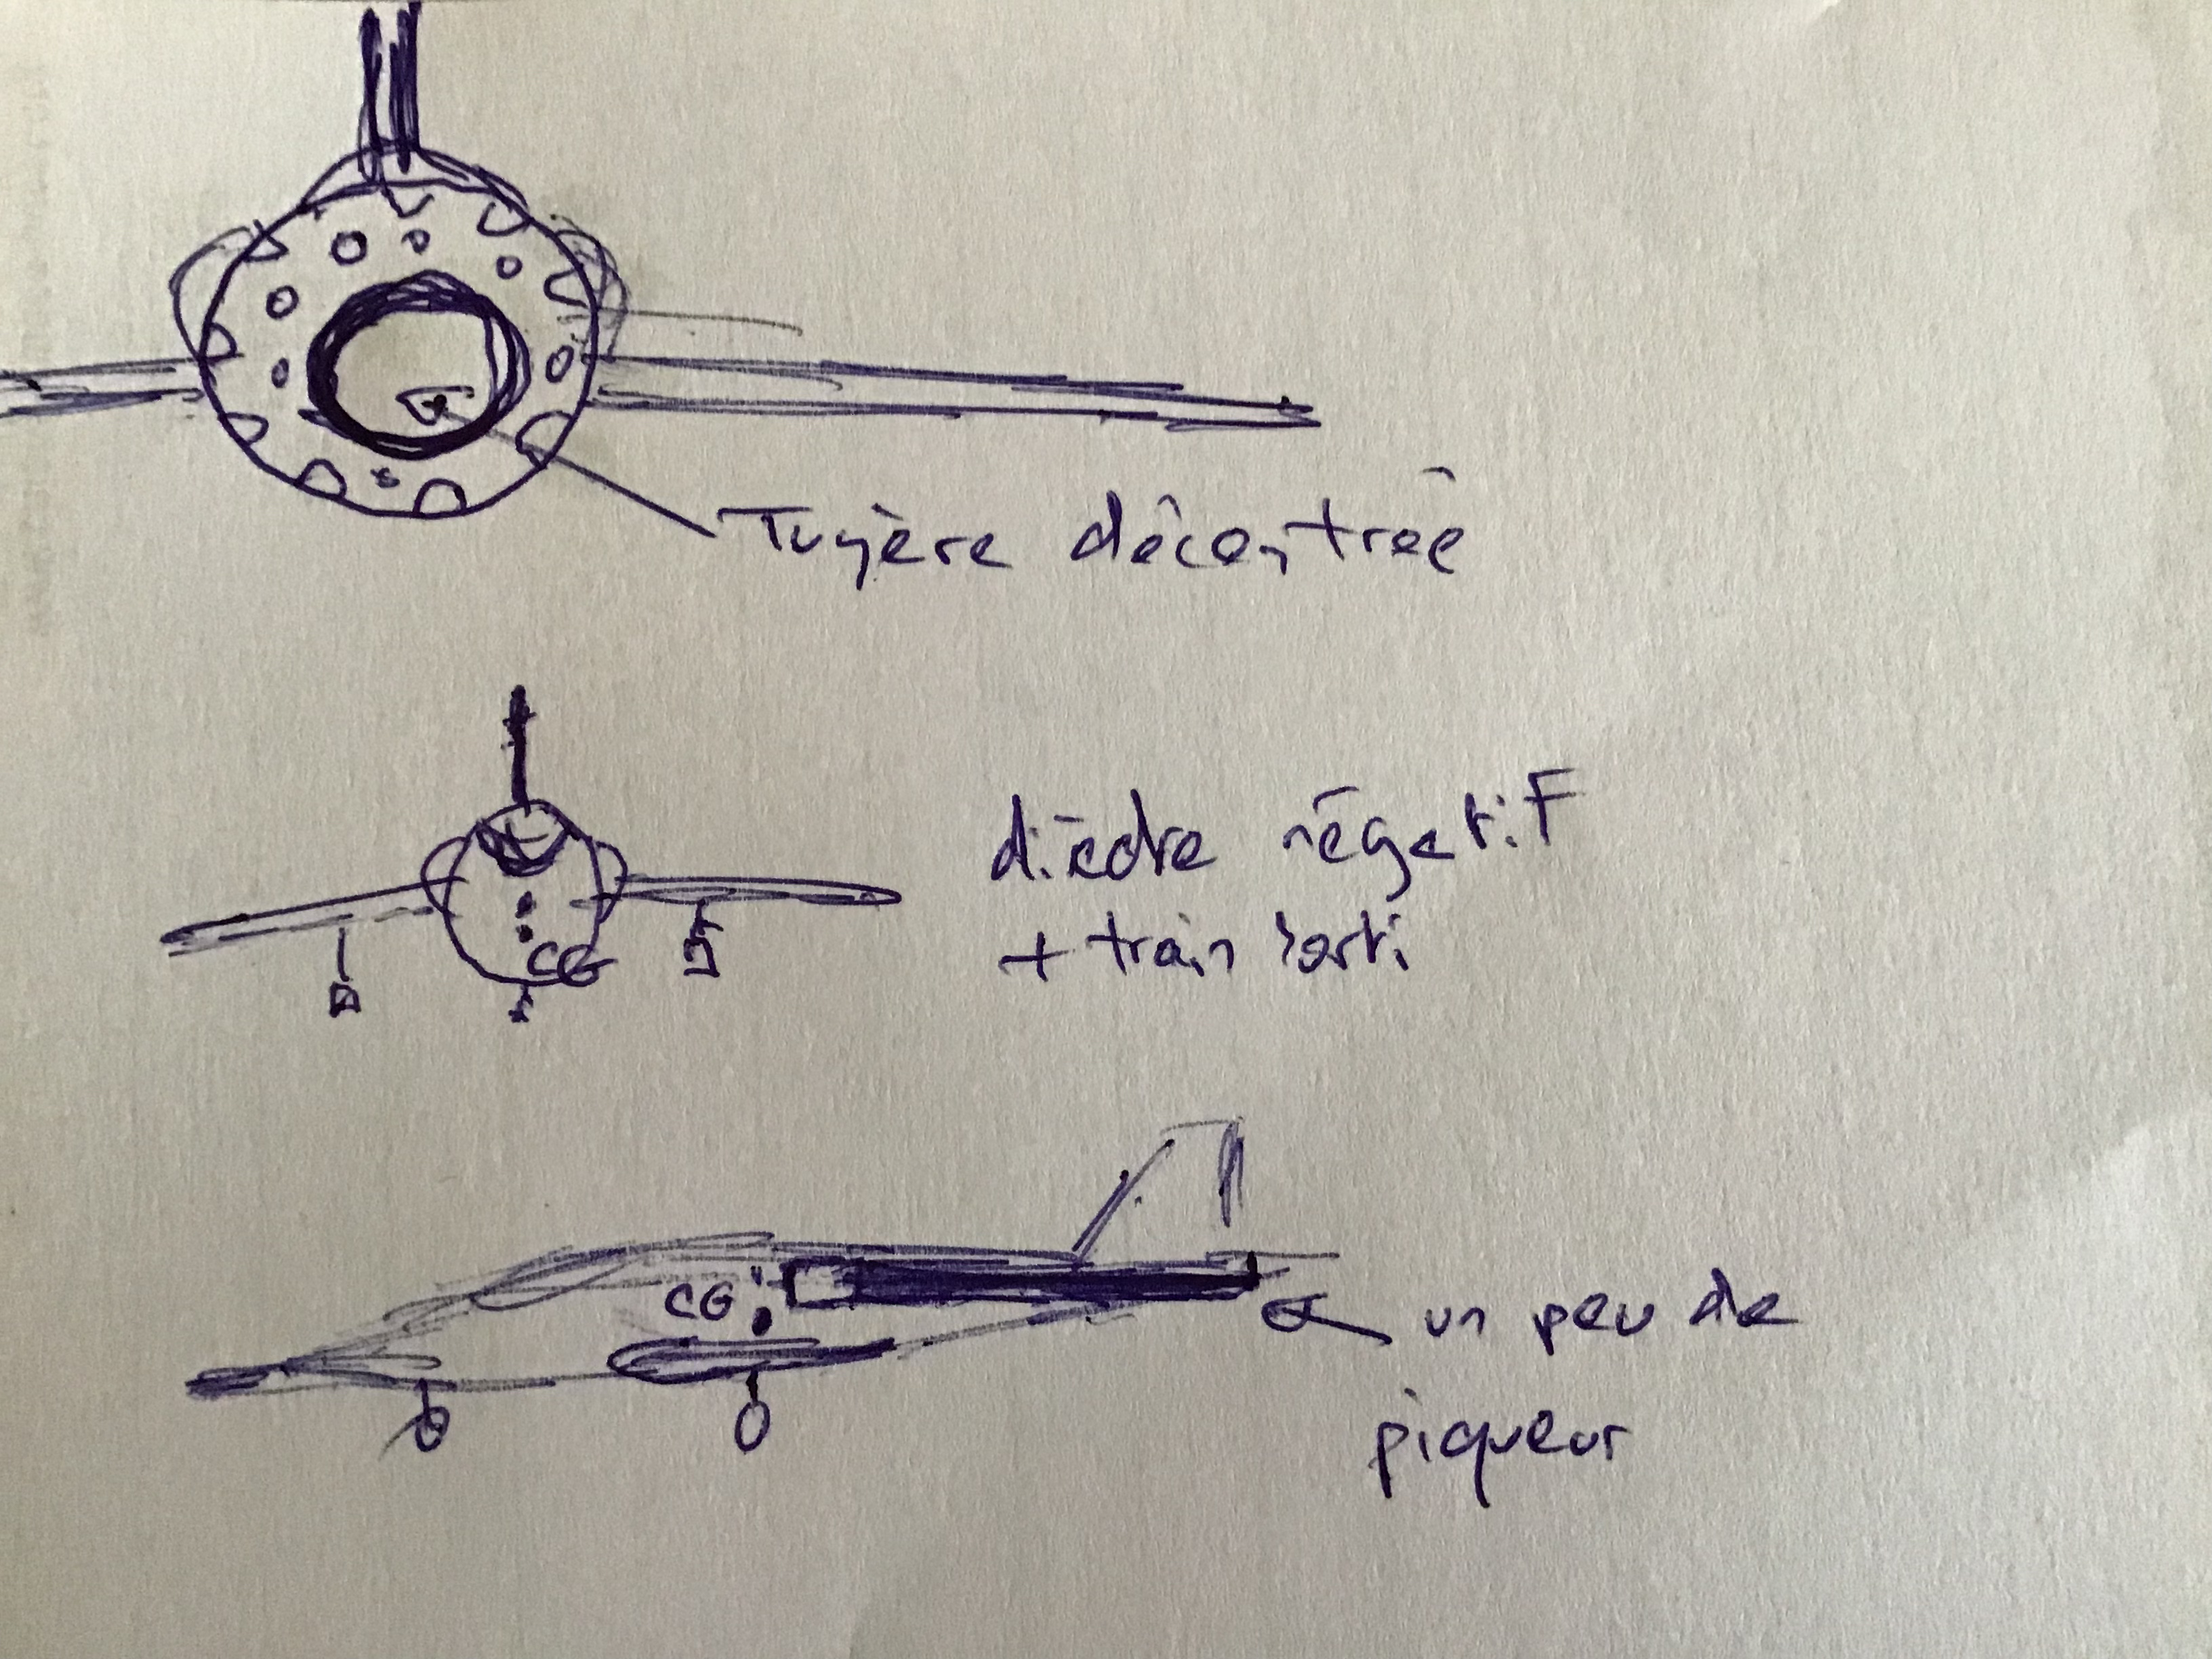 Tuyère décentrée
dièdre négatif
CG
+ train sorti
CG
un peu de
piqueur